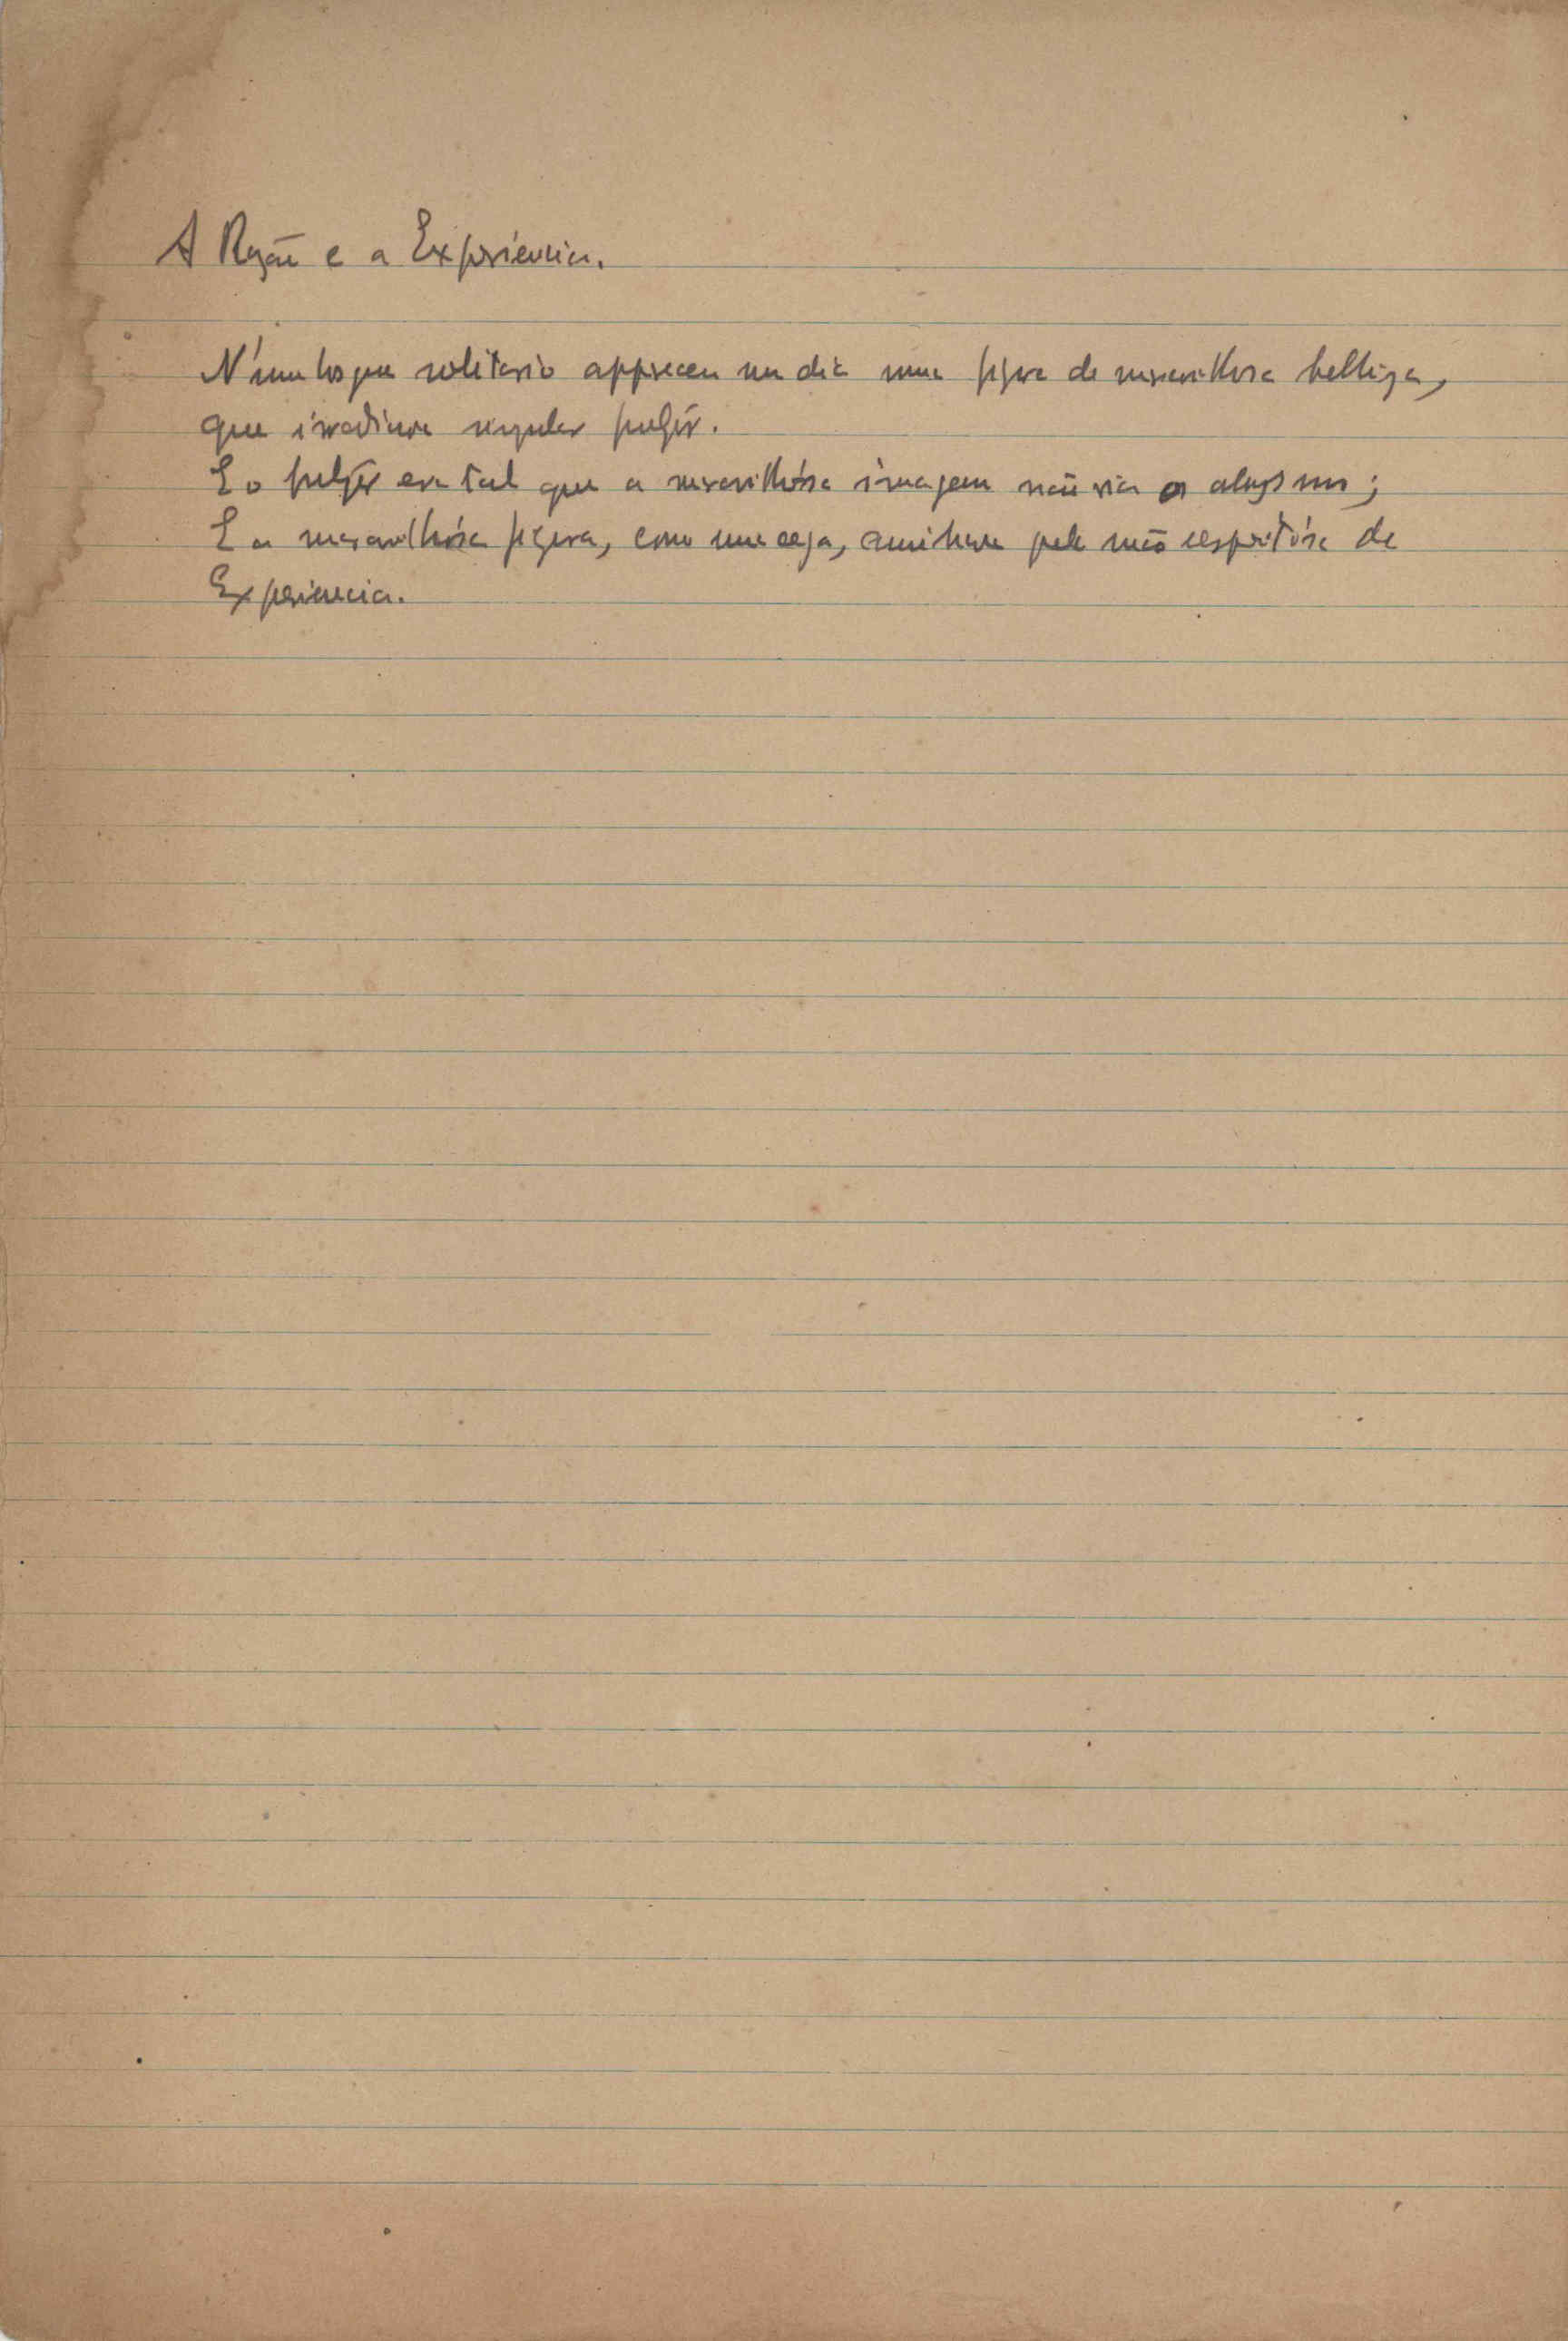 A Razão e a Experiencia.
N'um bosque solitario appareceu um dia uma figura de maravilhosa belleza,
que irradiava singular fulgôr.
E o fulgôr era tal que a maravilhósa imagem não via os abysmos;
E a maravilhósa figura, como uma cega, caminhava pela mão da
Experiencia.